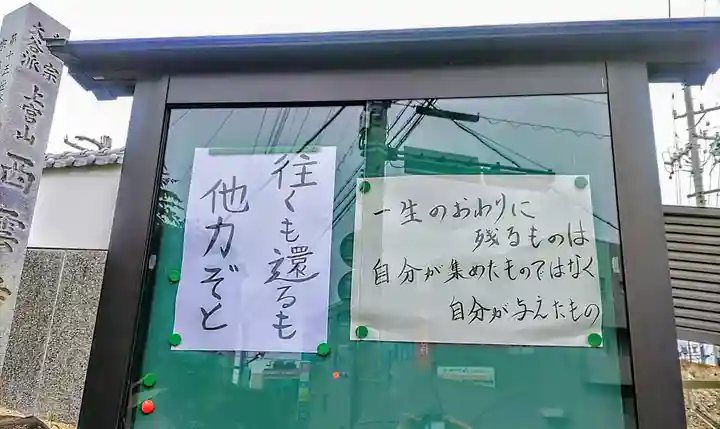 真宗
大谷派
上宮山
西雲寺
往くも還るも
他力ぞと
一生のおわりに
残るものは
自分が集めたものではなく
自分が与えたもの